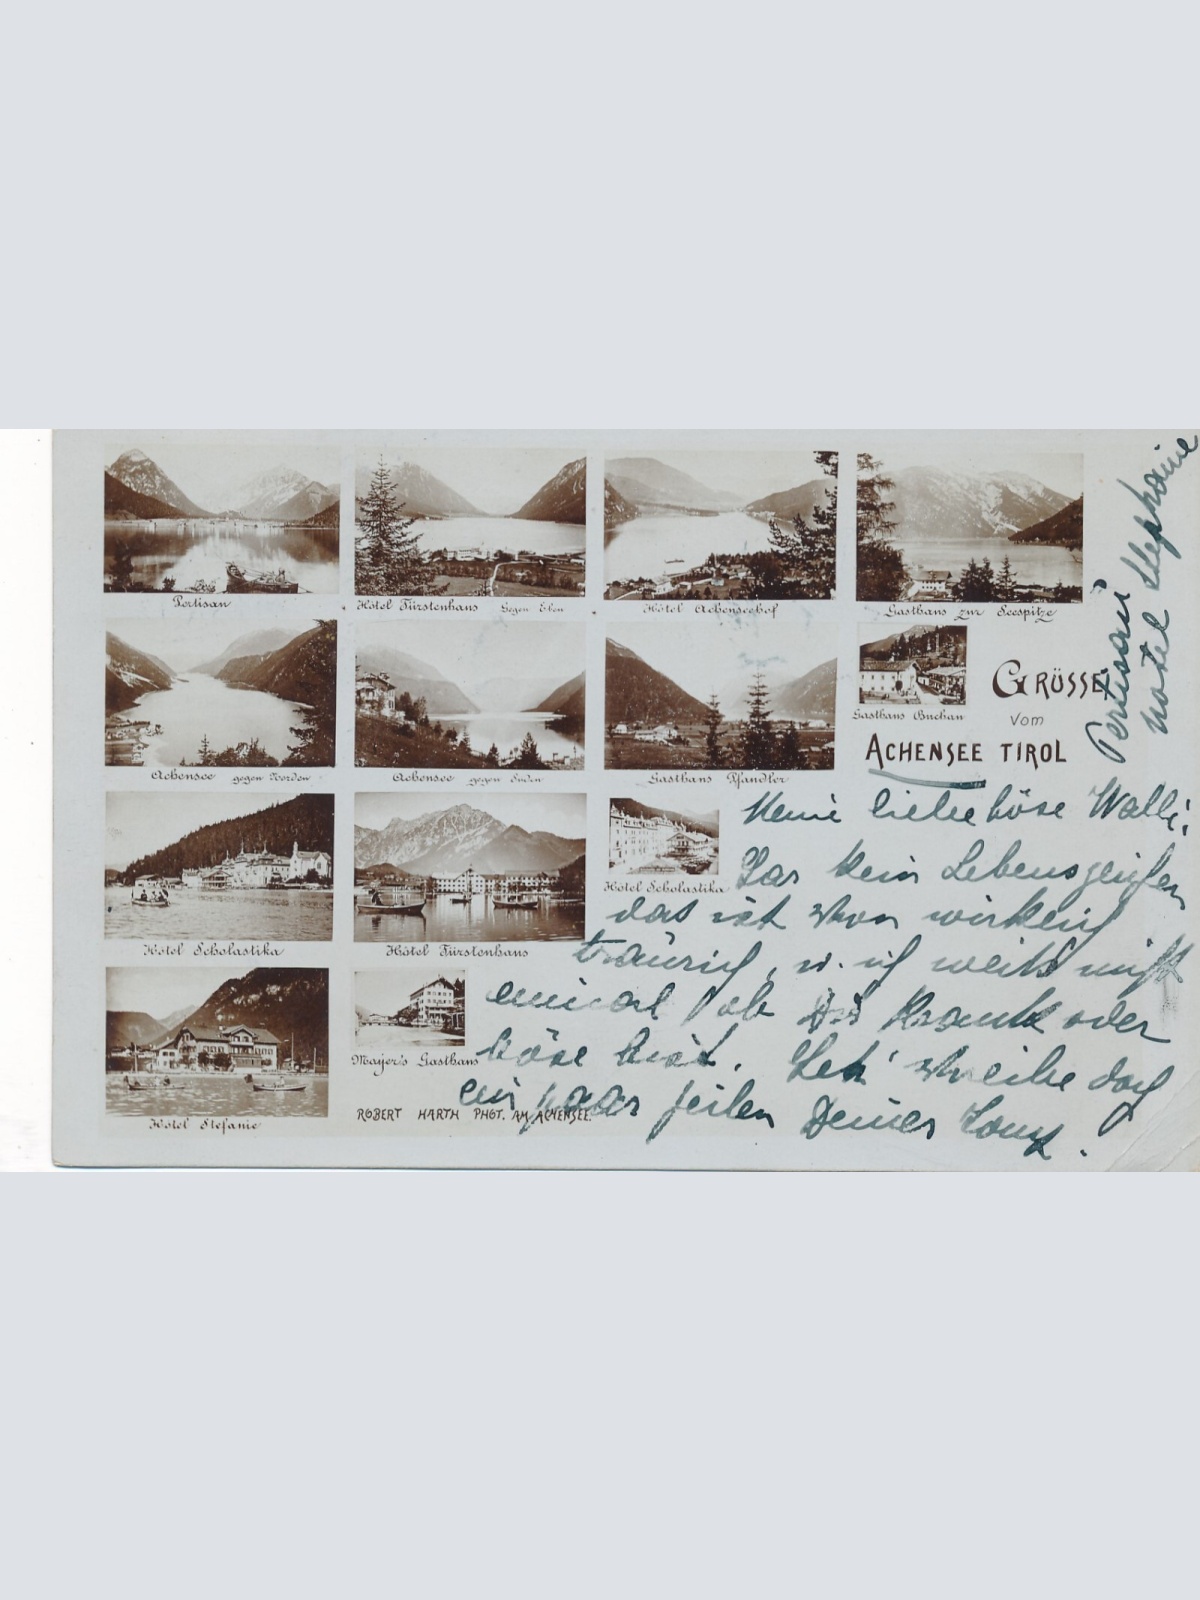 Pertisau
Hôtel Fürstenhaus Gegen Eben
Hôtel Achenseehof
Gasthaus zur Seespitze
Achensee gegen Norden
Achensee gegen Süden
Gasthaus Pfandler
Gasthaus Buchau
GRÜSSE
vom
ACHENSEE TIROL
Hôtel Scholastika
Hôtel Fürstenhaus
Hôtel Scholastika
Hôtel Stefanie
Mayer's Gasthaus
ROBERT HARTH PHOT. AM ACHENSEE.
Pertisau
Hotel Stephanie
Meine liebe böse Walli!
Gar kein Lebenszeichen
das ist schon wirklich
traurig, u. ich weiß nicht
einmal ob Du krank oder
böse bist. schreibe doch
ein paar Zeilen Deiner